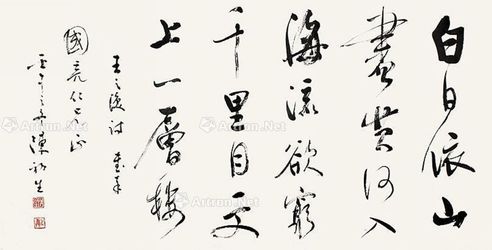 白日依山
盡黄河入
海流欲窮
千里目更
上一層樓
王之渙詩 書奉
國亮仁兄正
陳初生
Artron.Net